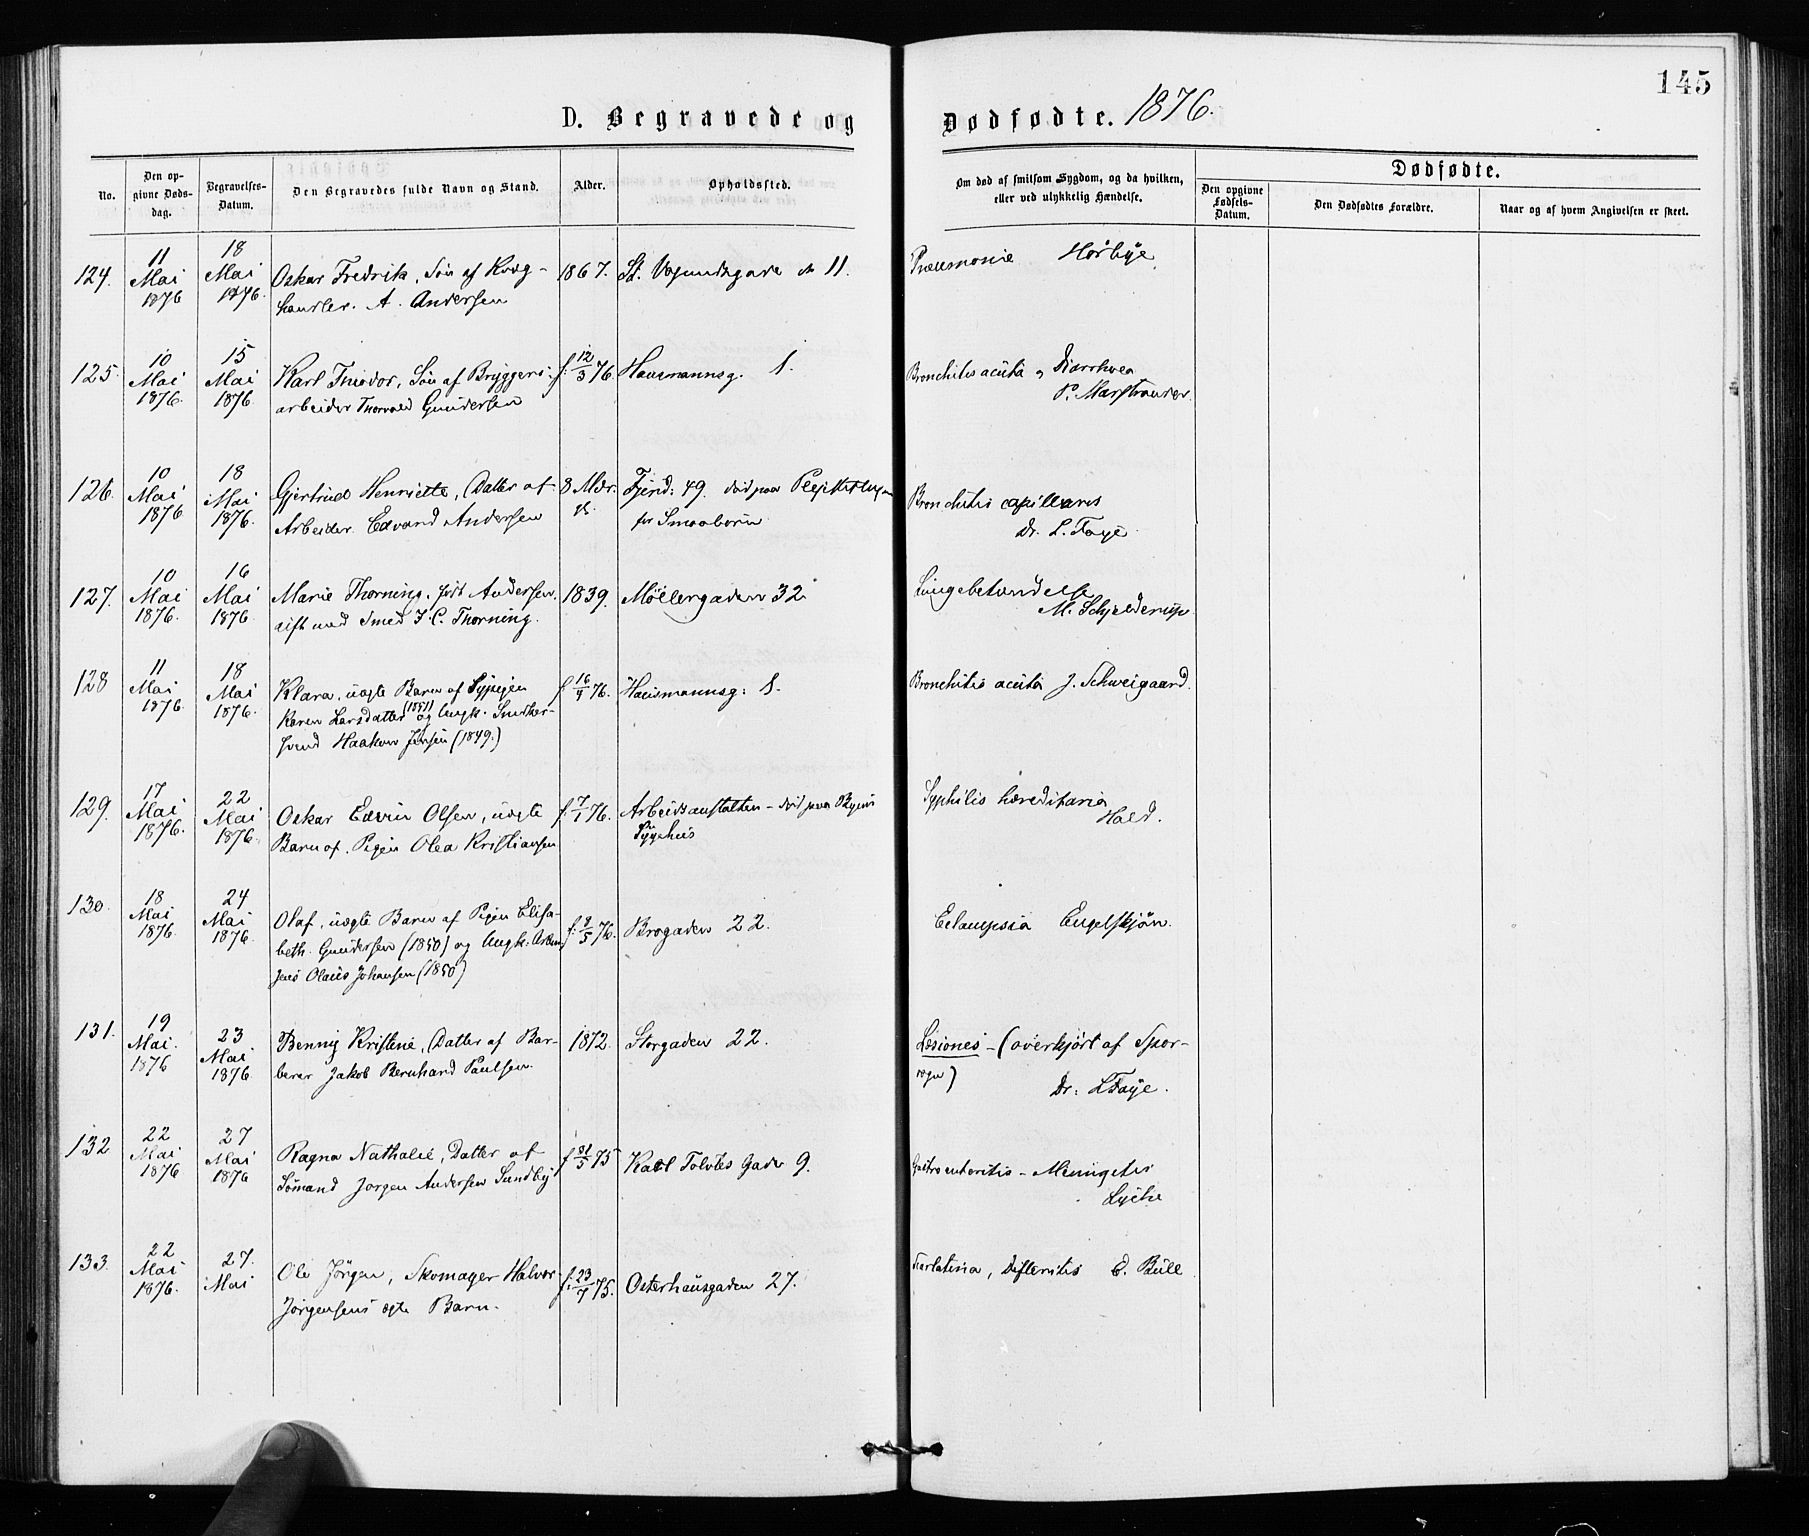 145
D. Begravede og Dødfødte. 1876.
No.
Den op-
givne Døds-
dag.
Begravelses-
Datum.
Den Begravedes fulde Navn og Stand.
Alder.
Opholdssted.
Om død af smitsom Sygdom, og da hvilken,
eller ved ulykkelig Hændelse.
Dødfødte.
Den opgivne
Fødsels-
Datum.
Den Dødfødtes Forældre.
Naar og af hvem Angivelsen er skeet.
124. 11 Mai 1876 18 Mai 1876. Oskar Fredrik, Søn af Kvæg- 1867. St. 11. Pneumonie Hørbye
handler. A. Andersen
125. 10 Mai 1876. 15 Mai 1876. Karl Theodor, Søn af Bryggeri- f. 12/3 76. Hausmannsg. 1. Bronchitis acuta og Diarrhoea
arbeider Thorvald Gundersen P. Marstrander.
126. 10 Mai 1876 18 Mai 1876. Gjertrud Henriette, Datter af 8 Mdr. Fjerd: 49. død paa
Arbeider Edvard Andersen for Smaabørn Bronchitis capillaris
Dr. L. Faye.
127. 10 Mai 1876. 16 Mai 1876. Marie Thorning, født Andersen. 1839. Møllergaden 32 Lungebetændelse
gift med Smed J. C. Thorning. M. Schjelderup.
128 11 Mai 1876. 18 Mai 1876. Klara, uægte Barn af Sypigen f 16/4 76. Hausmannsg: 1. Bronchitis acuta J. Schweigaard.
Karen Larsdatter (1851) og Ungk. Snedker-
svend Haakon Jensen (1849.)
129. 17 Mai 1876. 22 Mai 1876. Oskar Edvin Olsen, uægte f. 7/1 76. Arbeidsanstalten - død paa Byens Syphilis hæreditaria
Barn af. Pigen Olea Kristiansen Sygehus Hald.
130. 18 Mai 1876. 24 Mai 1876. Olaf, uægte Barn af Pigen Elisa- f. 9/5 76. Brogaden 22. Eclampsia Engelskjøn.
beth Gundersen (1850) og Ungk. Arbm
Jens Olaus Johansen (1850)
131. 19 Mai. 1876 23 Mai 1876. Benny Kristine, Datter af Bar- 1872. Storgaden 22. Læsiones - (overkjørt af Spor-
berer Jakob Bernhard Paulsen. vogn)
Dr: L Faye.
132 22 Mai 1876 27 Mai 1876 Ragna Nathalie, Datter af f 31/5 75 Karl Tolvtes Gade 9. Gastroenteritis - Meningitis
Sømand Jørgen Andersen Sundby Lyche
133. 22 Mai 1876. 27. Mai Ole Jørgen, Skomager Halvor f. 23/7 75. Osterhausgaden 27. Scarlatina, Difteritis E. Bull
Jørgensens ægte Barn.